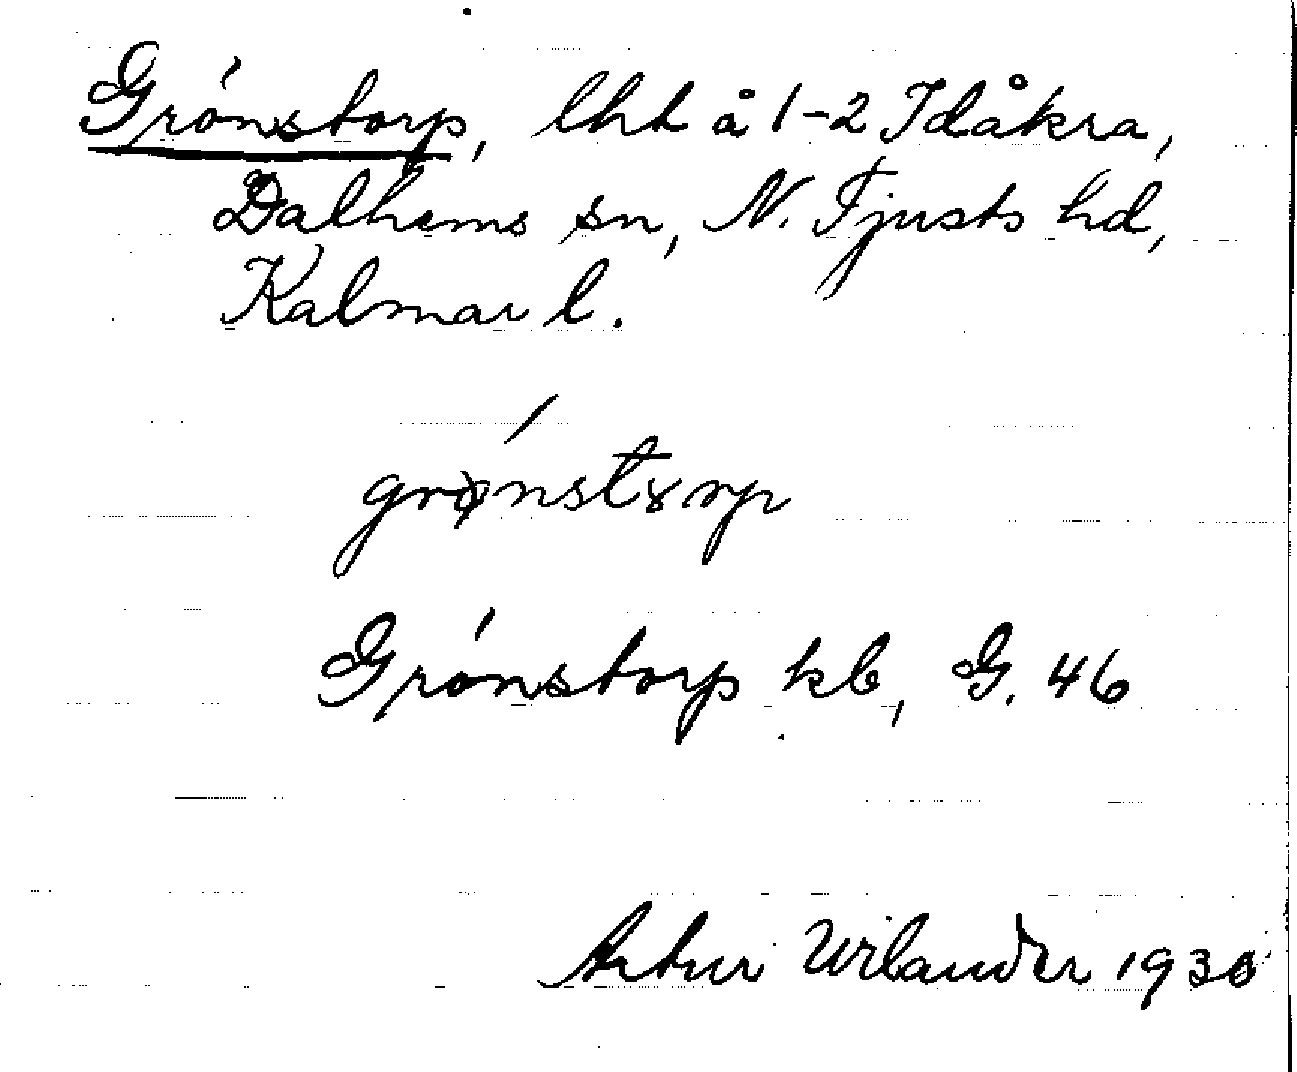 Grönstorp, lht å 1-2 Idåkra,
Dalhems sn, N. Tjusts hd,
Kalmar l.
grønstɤrp
Grönstorp kb, G. 46
Artur Wilander 1930